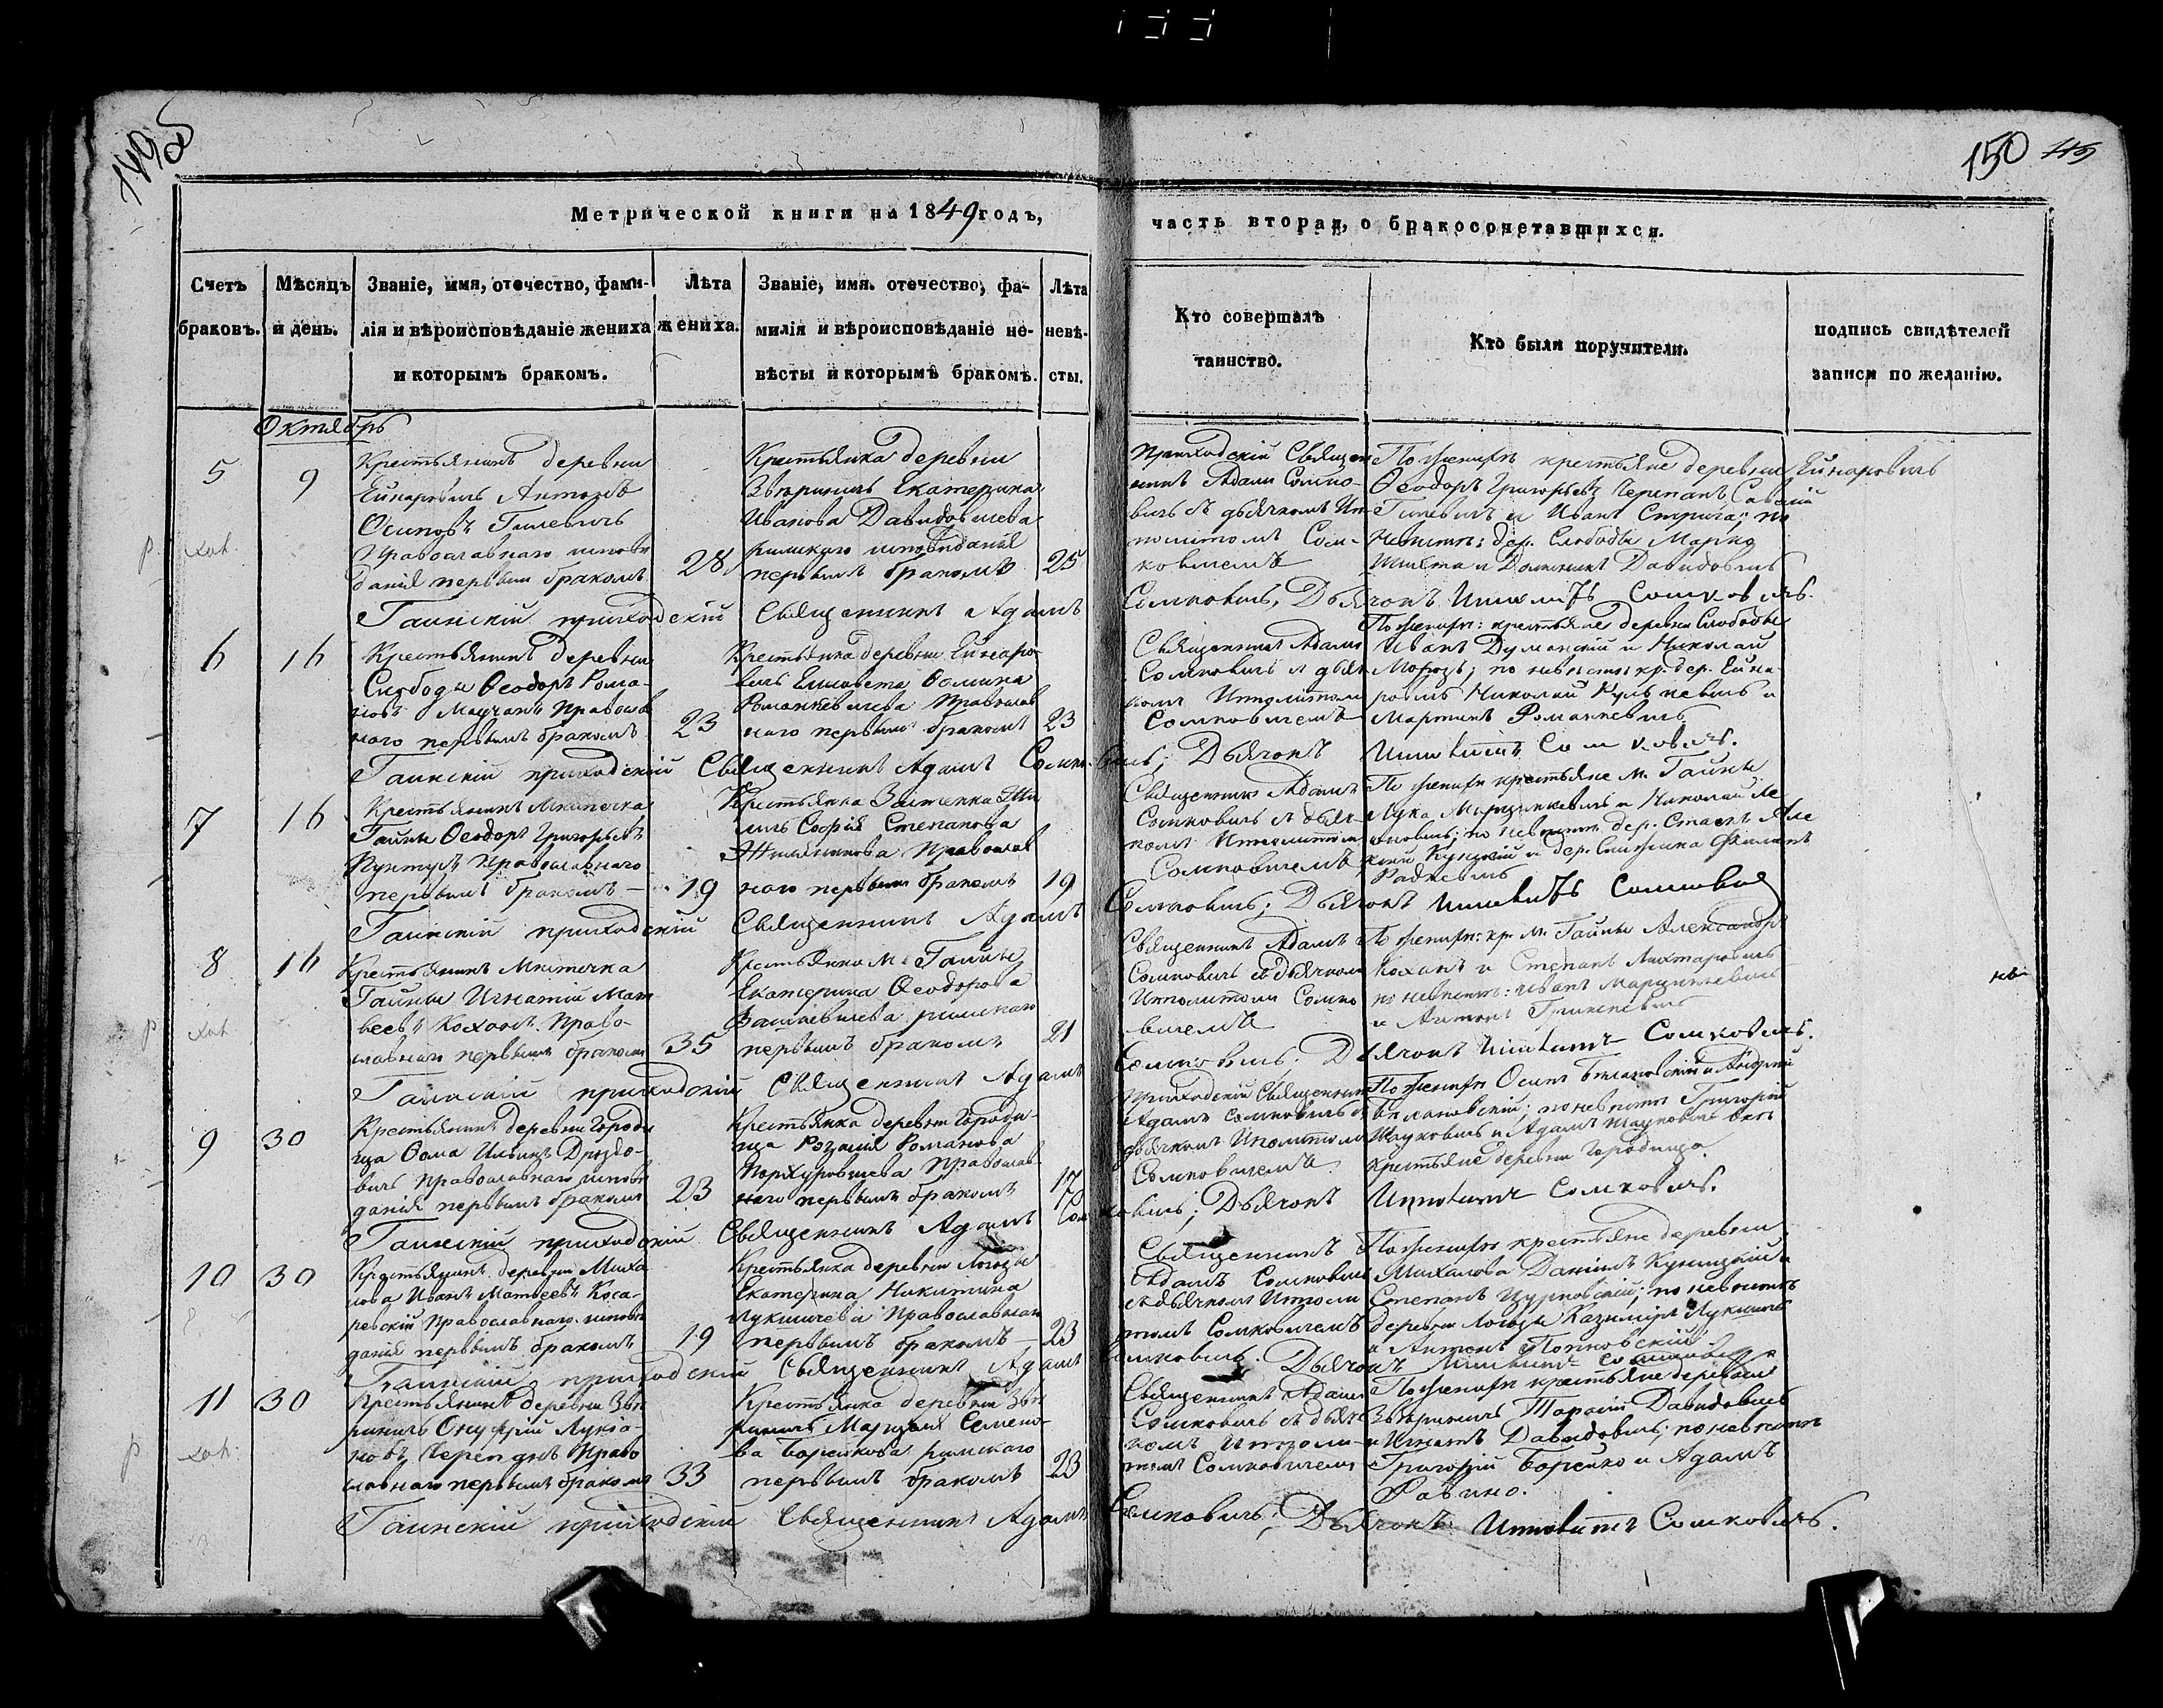 150
Метрической книги на 1849 годъ,
часть вторая, о бракосочетавшихся.
Счетъ браковъ.
Мѣсяцъ и день.
Званіе, имя, отечество, фамилія и вѣроисповѣданіе жениха и которымъ бракомъ.
Лѣта жениха.
Званіе, имя. отечество, фамилія и вѣроисповѣданіе невѣсты и которымъ бракомъ.
Лѣта невѣсты.
Кто совершалъ таинство.
Кто были поручители.
подпись свидѣтелей записи по желанію.
Октябрь
5
9
Крестьянинъ деревни
Антонъ
Осиповъ Гилевичъ
Православнаго исповѣ
данія первымъ бракомъ
28
Крестьянка деревни
Звѣриничъ Екатерина
Иванова Давидовичева
римскаго исповѣданія
первымъ бракомъ
25
Приходскій Священ
никъ Адамъ Сомко-
вичъ съ дьячкомъ Ип-
политомъ Сом-
ковичемъ
По женихѣ крестьяне деревни
Ѳеодоръ Григорьевъ Черепанъ
Гилевичъ и Иванъ Стрига; по
Невѣстѣ: дер. Слободы Марко
и Доминикъ Давидовичъ
Гаинскій приходскій Священникъ Адамъ Сомковичъ, Дьячокъ Ипполитъ Сомковичъ.
6
16
Крестьянинъ деревни
Слободы Ѳеодоръ Рома-
новъ Православ
наго первымъ бракомъ
23
Крестьянка деревни
Елисавета Ѳомина
Романкевичева Православ
наго первымъ бракомъ
23
Священникъ Адамъ
Сомковичъ съ дьяч
комъ Ипполитомъ
Сомковичемъ
По женихѣ: крестьяне деревни Слободы
Иванъ Думанскій и Николай
Морозъ; по невѣстѣ кр. дер.
Николай и
Мартинъ Романкевичъ
Гаинскій приходскій Священникъ Адамъ Сомковичъ; Дьячокъ Ипполитъ Сомковичъ.
7
16
Крестьянинъ Мѣстечка
Гайны Ѳеодоръ Григорьевъ
Православнаго
первымъ бракомъ
19
Крестьянка
София Степанова
Православ
наго первымъ бракомъ
19
Священникъ Адамъ
Сомковичъ съ дьяч-
комъ Ипполитом
Сомковичемъ
По женихѣ крестьяне м. Гайны
Лука Марцинкевичъ и Николай
по невѣстѣ дер.
Гаинскій приходскій Священникъ Адамъ Сомковичъ; Дьячокъ Ипполитъ Сомковичъ
8
16
Крестьянинъ Мѣстечка
Гайны Игнатій Мат
веевъ Коханъ Право-
славнаго первымъ бракомъ
35
Крестьянка М. Гайны
Екатерина Ѳеодорова
римскаго
первымъ бракомъ
21
Священникъ Адамъ
Сомковичъ съ дьячкомъ
Ипполитомъ Сомко
вичемъ
По женихѣ: кр. М. Гайны Александръ
Коханъ и Степанъ Лихтаровичъ
по невѣстѣ: Иванъ Марцинкевичъ
и Антонъ
Гаинскій приходскій Священникъ Адамъ Сомковичъ; Дьячокъ Ипполитъ Сомковичъ.
9
30
Крестьянинъ деревни Городи
ща Ѳома Ильинъ Дроздо-
вичъ Православнаго исповѣ
данія первымъ бракомъ
23
Крестьянка деревни Городи-
ща Розалія Романова
Православ-
наго первымъ бракомъ
17
Приходскій Священникъ
Адамъ Сомковичъ съ
дьячкомъ Ипполитомъ
Сомковичемъ
По женихѣ Осипъ и Андрей
по невѣстѣ Григорій
и Адамъ всѣ
крестьяне деревни Городища.
Гаинскій приходскій Священникъ Адамъ Сомковичъ; Дьячокъ Ипполитъ Сомковичъ.
10
30
Крестьянинъ деревни Миха
лова Иванъ Матвеевъ Коса-
ревскій Православнаго исповѣ
данія первымъ бракомъ
19
Крестьянка деревни Логозы
Екатерина Никитина
Лукшичева Православнаго
первымъ бракомъ
23
Священникъ
Адамъ Сомковичъ
съ дьячкомъ Ипполи
томъ Сомковичемъ
По женихѣ крестьяне деревни
Михалова Даніилъ Куницкій и
Степанъ по невѣстѣ
деревни Логозы Казимиръ Лукшичъ
и Антонъ
Гаинскій приходскій Священникъ Адамъ Сомковичъ. Дьячокъ Ипполитъ Сомковичъ
11
30
Крестьянинъ деревни Звѣ
риничъ Онуфрій Лукья-
новъ Православнаго первымъ бракомъ
33
Крестьянка деревни Звѣ
риничъ Марцеля Семено-
ва Борейкова римскаго
первымъ бракомъ
23
Священникъ Адамъ
Сомковичъ съ дьяч
комъ Ипполи-
томъ Сомковичемъ
По женихѣ крестьяне деревни
Звѣриничъ Тарасій Давидовичъ
и Игнатъ Давидовичъ; по невѣстѣ
Григорій Борейко и Адамъ
Гаинскій приходскій Священникъ Адамъ Сомковичъ; Дьячокъ Ипполитъ Сомковичъ.